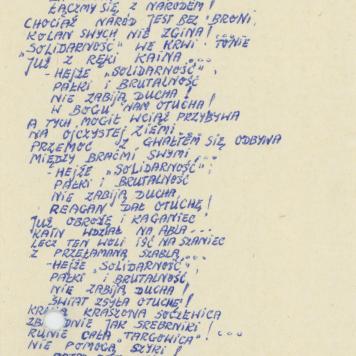 ŁĄCZMY SIĘ Z NARODEM!
CHOCIAŻ NARÓD JEST BEZ BRONI,
KOLAN SWYCH NIE ZGINA!...
"SOLIDARNOŚĆ" WE KRWI TONIE
JUŻ Z RĘKI KAINA...
- HEJŻE „SOLIDARNOŚĆ",
PAŁKI I BRUTALNOŚĆ
NIE ZABIJĄ DUCHA!
W BOGU NAM OTUCHA!
A TYCH MOGIŁ WCIĄŻ PRZYBYWA
NA OJCZYSTEJ ZIEMI...
PRZEMOC Z GWAŁTEM SIĘ ODBYWA
MIĘDZY BRAĆMI SWYMI...
- HEJŻE „SOLIDARNOŚĆ".
PAŁKI I BRUTALNOŚĆ
NIE ZABIJĄ DUCHA,
REAGAN DAŁ OTUCHĘ!
JUŻ OBROŻĘ I KAGANIEC
KAIN WDZIAŁ NA ABLA...
LECZ TEN WOLI IŚĆ NA SZANIEC
Z PRZEŁAMANĄ SZABLĄ...
- HEJŻE „SOLIDARNOŚĆ",
PAŁKI I BRUTALNOŚĆ
NIE ZABIJĄ DUCHA!
ŚWIAT ZSYŁA OTUCHĘ!
KRWIĄ KRASZONA
JAK SREBRNIKI!
RUNIE CAŁA "TARGOWICA"...
NIE POMOGĄ SZYKI!